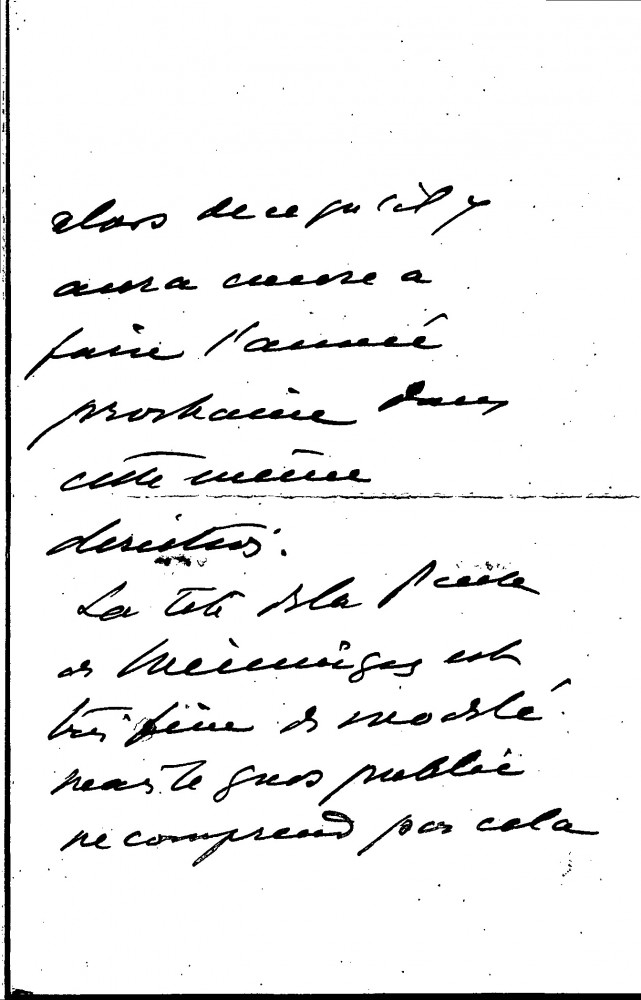 alors de ce qu'il y
aura encore a
faire l'année
prochaine dans
cette même
direction.
La tête de la
de est
très fine de modelé
mais le gros public
ne comprend pas cela